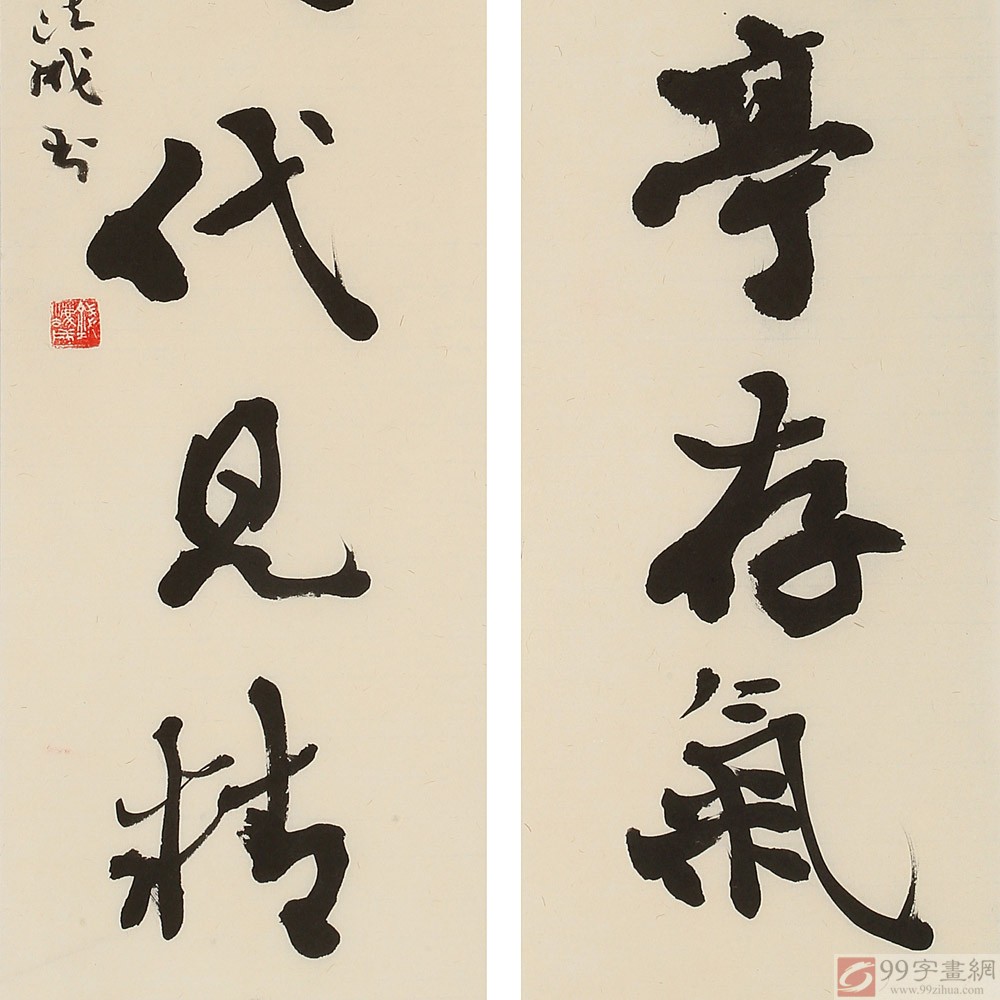 亭存氣
代見精
法成书
99字畫網
www.99zihua.com